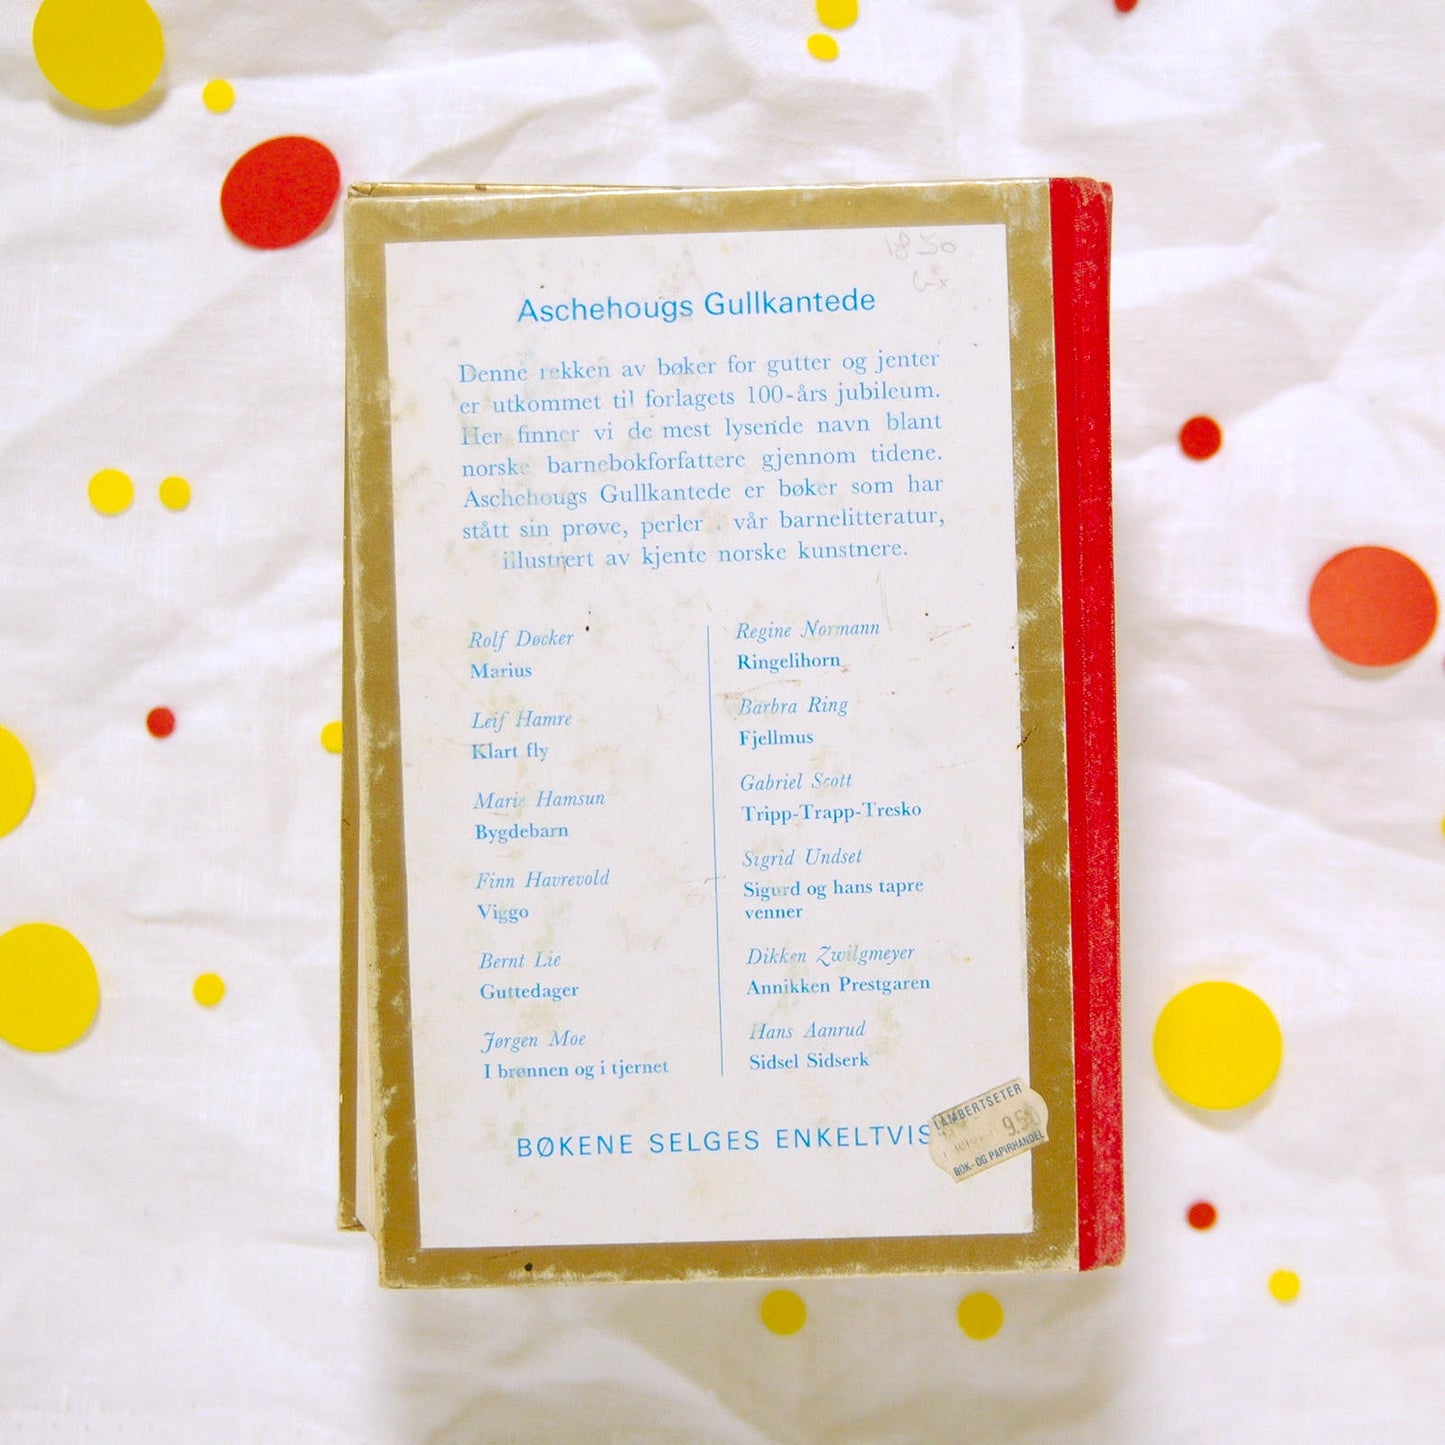 18 50
Aschehougs Gullkantede
Denne rekken av bøker for gutter og jenter
er utkommet til forlagets 100-års jubileum.
Her finner vi de mest lysende navn blant
norske barnebokforfattere gjennom tidene.
Aschehougs Gullkantede er bøker som har
stått sin prøve, perler i vår barnelitteratur,
illustrert av kjente norske kunstnere.
Rolf Døcker
Marius
Leif Hamre
Klart fly
Marie Hamsun
Bygdebarn
Finn Havrevold
Viggo
Bernt Lie
Guttedager
Jørgen Moe
I brønnen og i tjernet
Regine Normann
Ringelihorn
Barbra Ring
Fjellmus
Gabriel Scott
Tripp-Trapp-Tresko
Sigrid Undset
Sigurd og hans tapre
venner
Dikken Zwilgmeyer
Annikken Prestgaren
Hans Aanrud
Sidsel Sidserk
BØKENE SELGES ENKELTVIS
LAMBERTSETER
9.50
BOK- OG PAPIRHANDEL